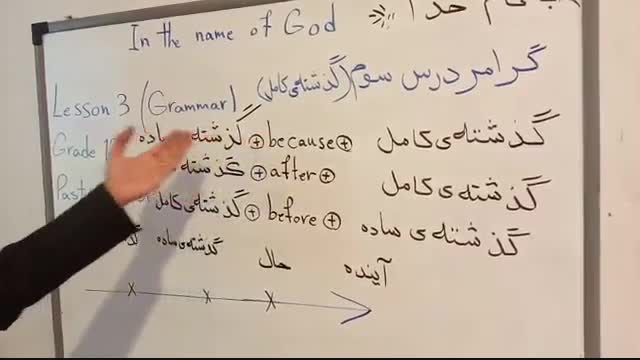 خدا
In the name of God
گرامر درس سوم (گذشته‌ی کامل)
Lesson 3 (Grammar)
گذشته ساده + because + گذشته‌ی کامل
Grade
گذشته + after + گذشته‌ی کامل
گذشته‌ی کامل + before + گذشته‌ی ساده
گذشته‌ی ساده حال آینده